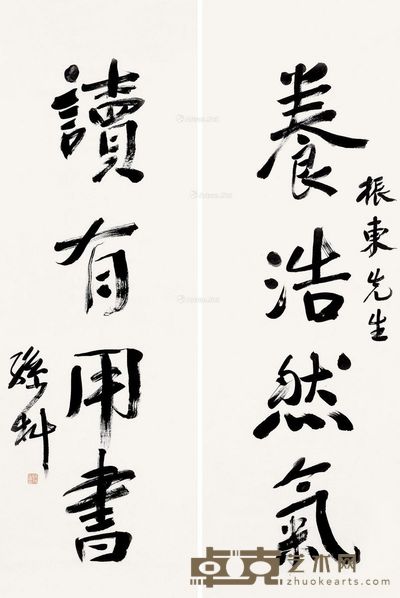 養浩然氣
振東先生
讀有用書
孫科
卓克艺术网
zhuokearts.com